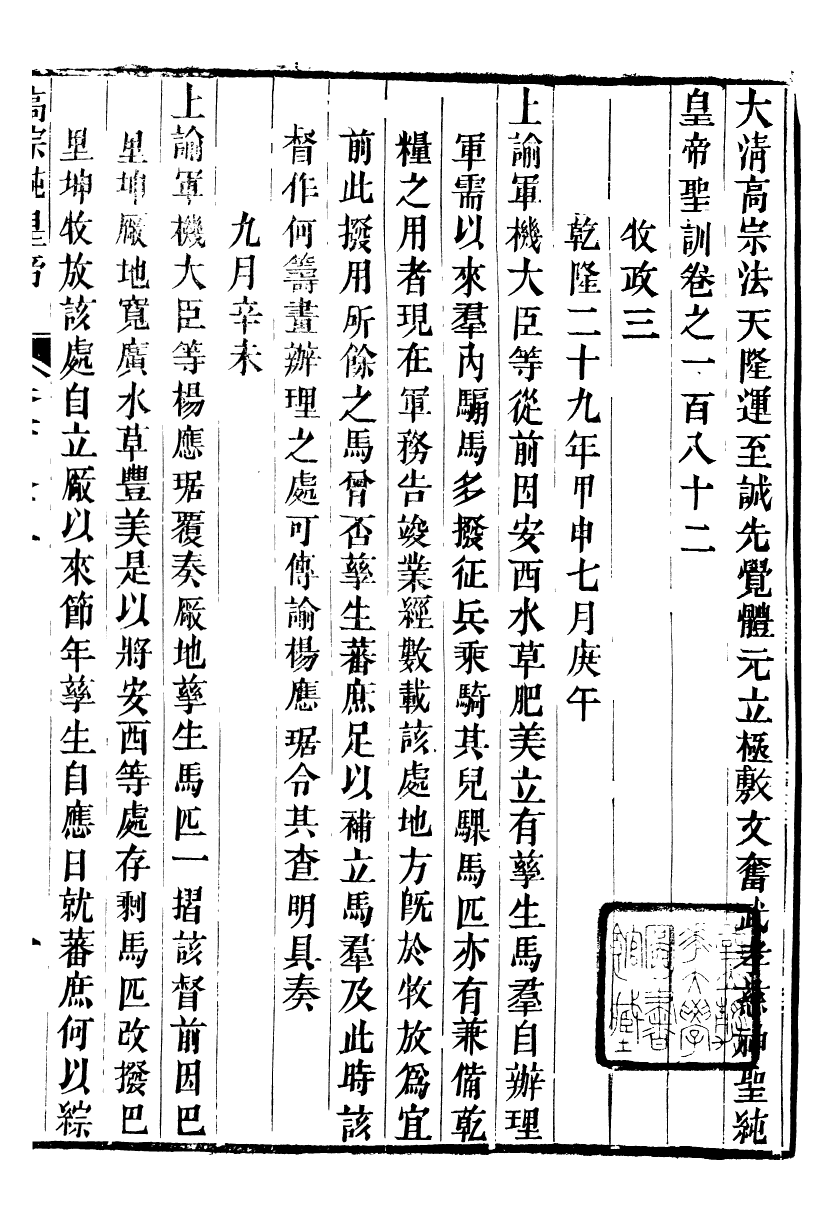 大清高宗法天隆運至誠先覺體元立極敷文奮武孝慈神聖純
皇帝聖訓卷之一百八十二
牧政三
乾隆二十九年甲申七月庚午
上諭軍機大臣等從前因安西水草肥美立有孳生馬羣自辦理
軍需以來羣內騸馬多撥征兵乘騎其兒騍馬匹亦有兼備乾
糧之用者現在軍務告竣業經數載該處地方旣於牧放爲宜
前此撥用所餘之馬曾否孳生蕃庶足以補立馬羣及此時該
督作何籌畫辦理之處可傳諭楊應琚令其查明具奏
九月辛未
上諭軍機大臣等楊應琚覆奏厰地孳生馬匹一摺該督前因巴
里坤厰地寬廣水草豐美是以將安西等處存剩馬匹改撥巴
里坤牧放該處自立厰以來節年孳生自應日就蕃庶何以綜
高宗純皇帝
大學
圖書
館藏